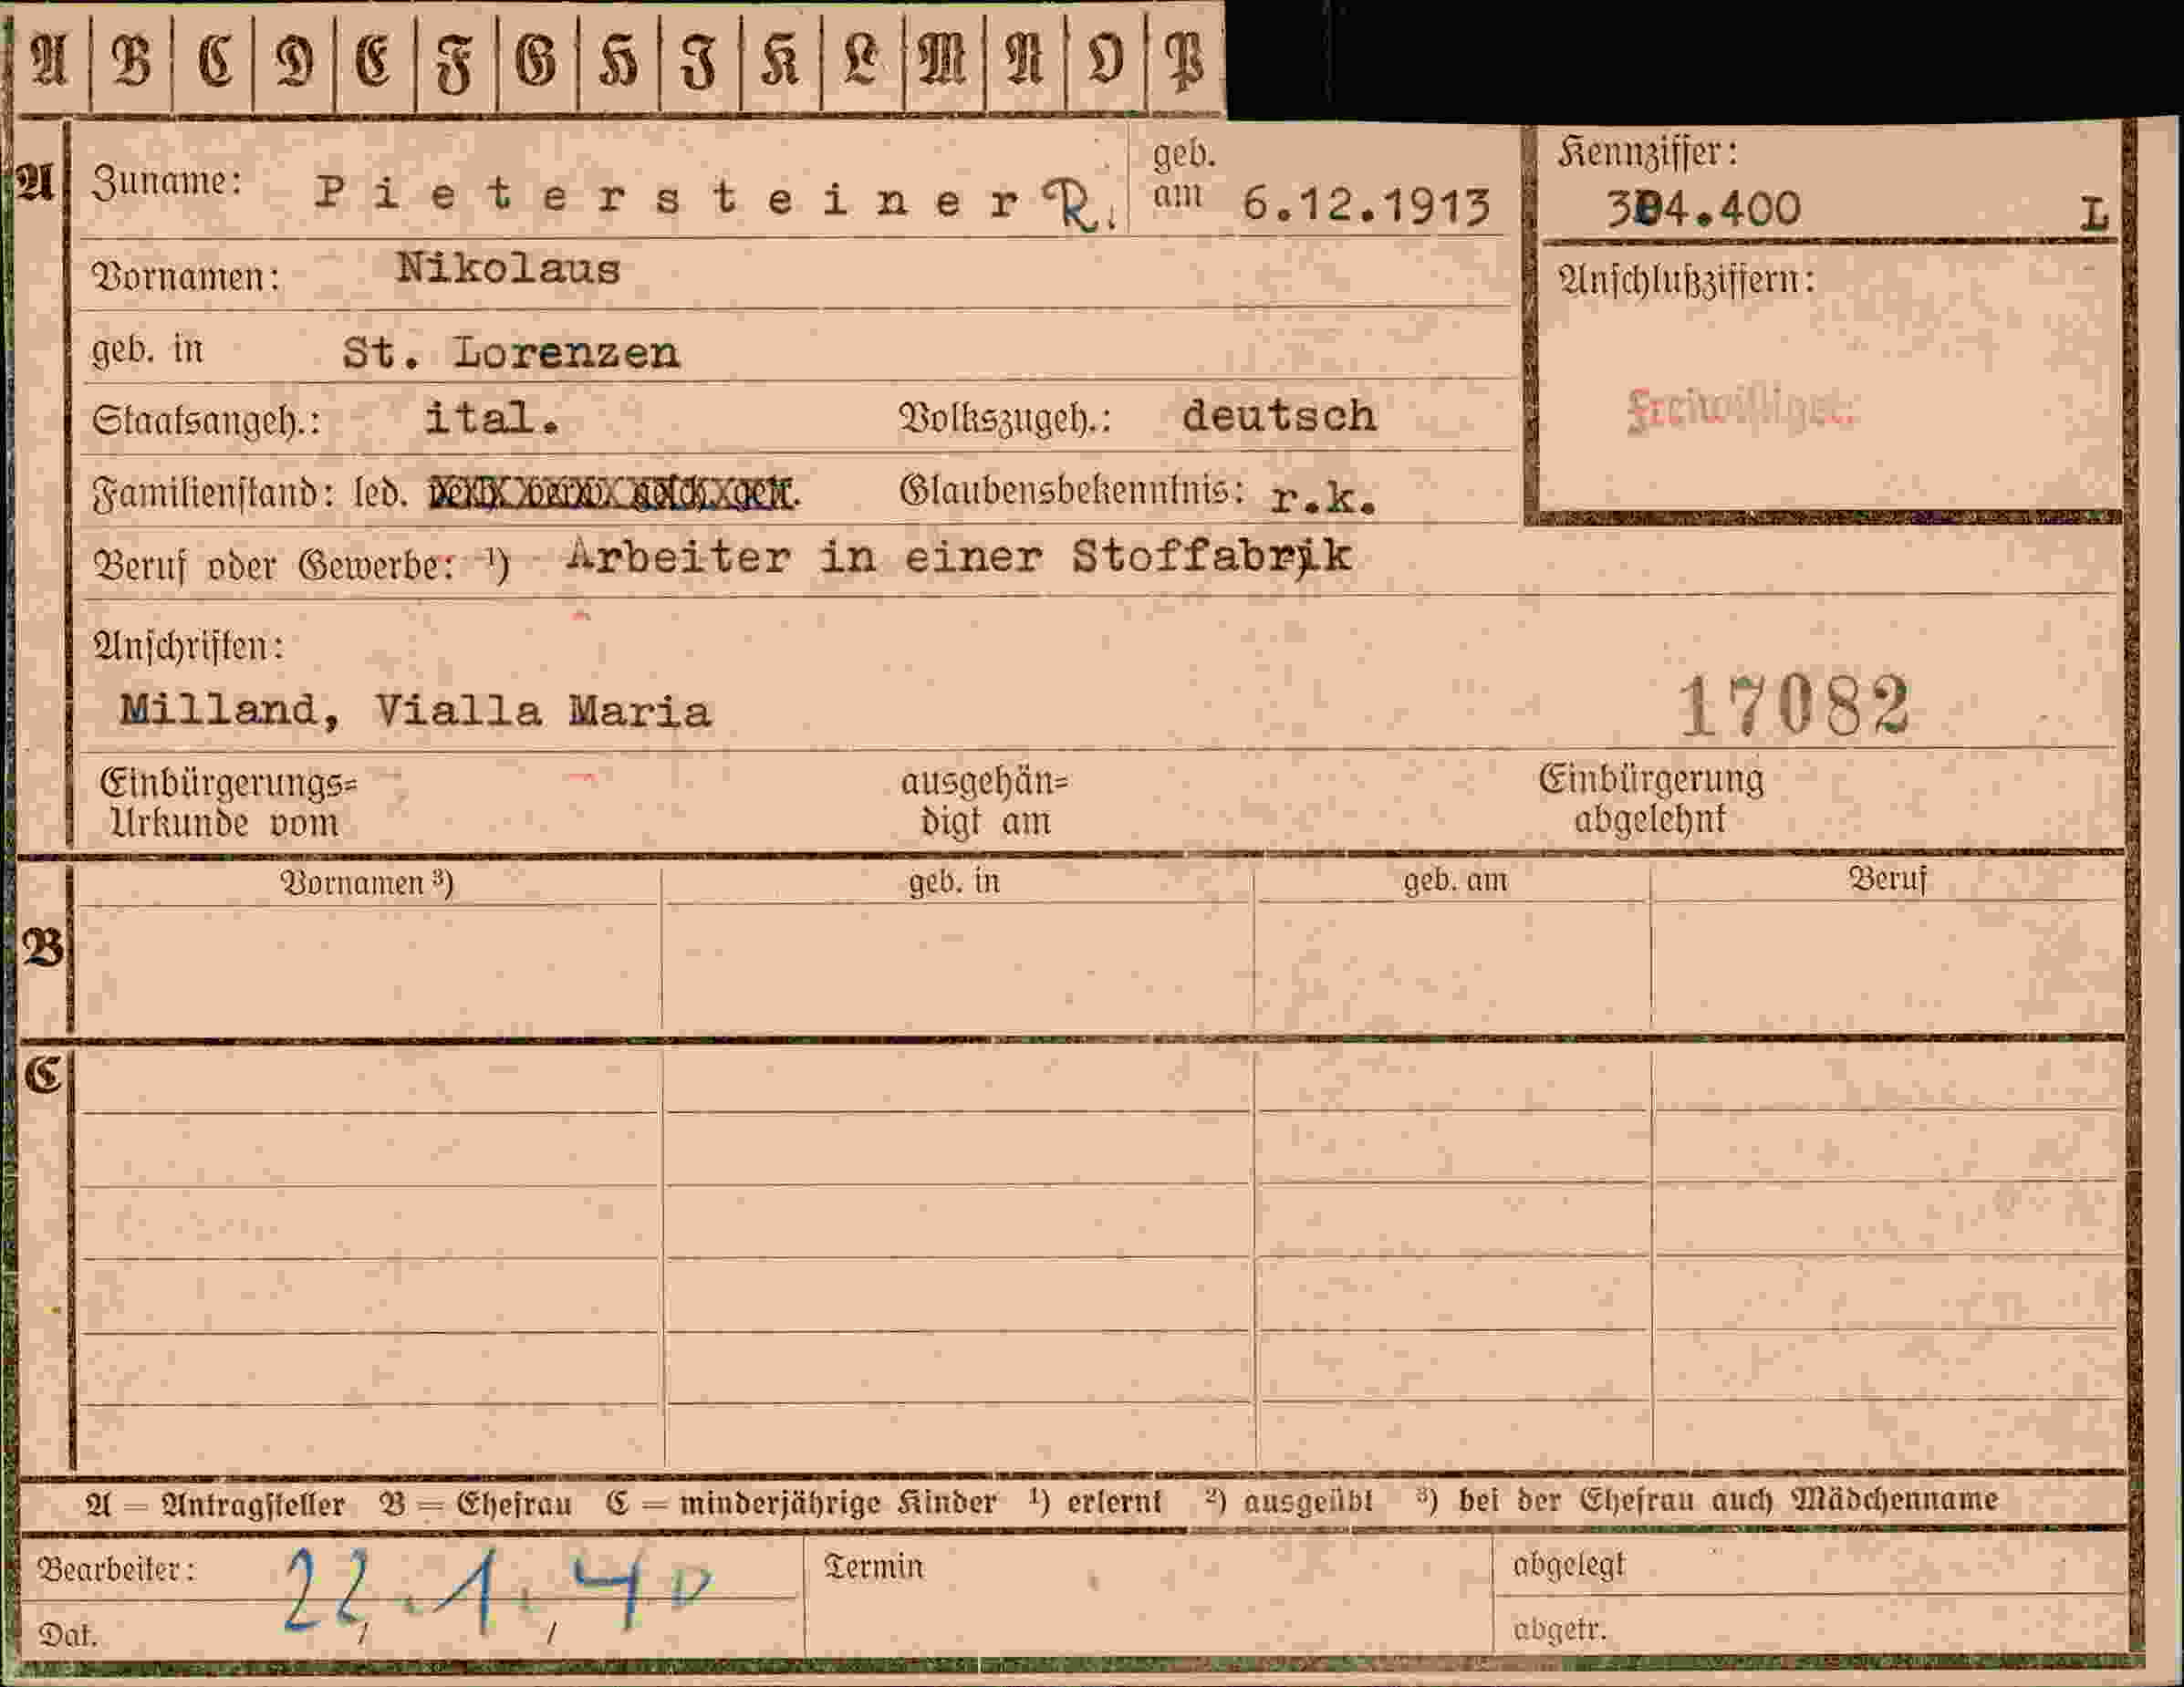 A B C D E F G H I K L M N O P
A Zuname: Pietersteiner R. geb. am 6.12.1913
Kennziffer:
304.400 L
Vornamen: Nikolaus
Anschlußziffern:
geb. in St. Lorenzen
Freiwilliger
Staatsangeh.: ital. Volkszugeh.: deutsch
Familienstand: led. Glaubensbekenntnis: r.k.
Beruf oder Gewerbe: ¹) Arbeiter in einer Stoffabrik
Anschriften:
Milland, Vialla Maria 17082
Einbürgerungs= ausgehän= Einbürgerung
Urkunde vom digt am abgelehnt
Vornamen ³) geb. in geb. am Beruf
B
C
A = Antragsteller B = Ehefrau C = minderjährige Kinder ¹) erlernt ²) ausgeübt ³) bei der Ehefrau auch Mädchenname
Bearbeiter: 22.1.40 Termin abgelegt
Dat. abgetr.